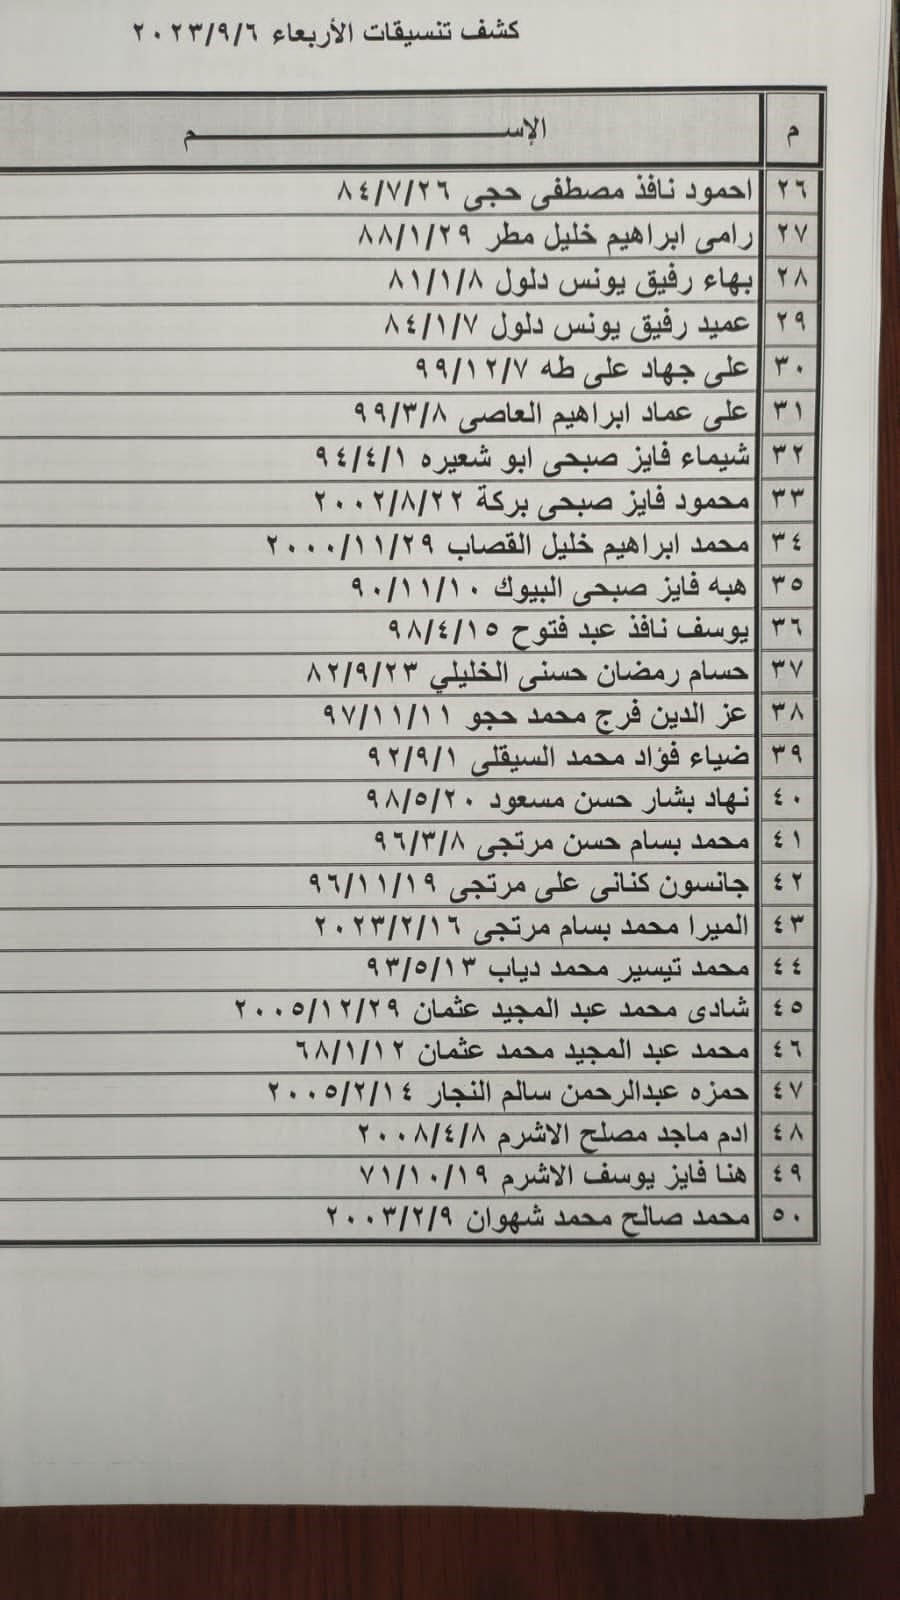 كشف تنسيقات الأربعاء ٢٠٢٣/٩/٦
م الإســـــم
٢٦ احمود نافذ مصطفى حجى ٨٤/٧/٢٦
٢٧ رامى ابراهيم خليل مطر ٨٨/١/٢٩
٢٨ بهاء رفيق يونس دلول ٨١/١/٨
٢٩ عميد رفيق يونس دلول ٨٤/١/٧
٣٠ على جهاد على طه ٩٩/١٢/٧
٣١ على عماد ابراهيم العاصى ٩٩/٣/٨
٣٢ شيماء فايز صبحى ابو شعيره ٩٤/٤/١
٣٣ محمود فايز صبحى بركة ٢٠٠٢/٨/٢٢
٣٤ محمد ابراهيم خليل القصاب ٢٠٠٠/١١/٢٩
٣٥ هبه فايز صبحى البيوك ٩٠/١١/١٠
٣٦ يوسف نافذ عبد فتوح ٩٨/٤/١٥
٣٧ حسام رمضان حسنى الخليلي ٨٢/٩/٢٣
٣٨ عز الدين فرج محمد حجو ٩٧/١١/١١
٣٩ ضياء فؤاد محمد السيقلى ٩٢/٩/١
٤٠ نهاد بشار حسن مسعود ٩٨/٥/٢٠
٤١ محمد بسام حسن مرتجى ٩٦/٣/٨
٤٢ جانسون كنانى على مرتجى ٩٦/١١/١٩
٤٣ الميرا محمد بسام مرتجى ٢٠٢٣/٢/١٦
٤٤ محمد تيسير محمد دياب ٩٣/٥/١٣
٤٥ شادى محمد عبد المجيد عثمان ٢٠٠٥/١٢/٢٩
٤٦ محمد عبد المجيد محمد عثمان ٦٨/١/١٢
٤٧ حمزه عبدالرحمن سالم النجار ٢٠٠٥/٢/١٤
٤٨ ادم ماجد مصلح الاشرم ٢٠٠٨/٤/٨
٤٩ هنا فايز يوسف الاشرم ٧١/١٠/١٩
٥٠ محمد صالح محمد شهوان ٢٠٠٣/٢/٩